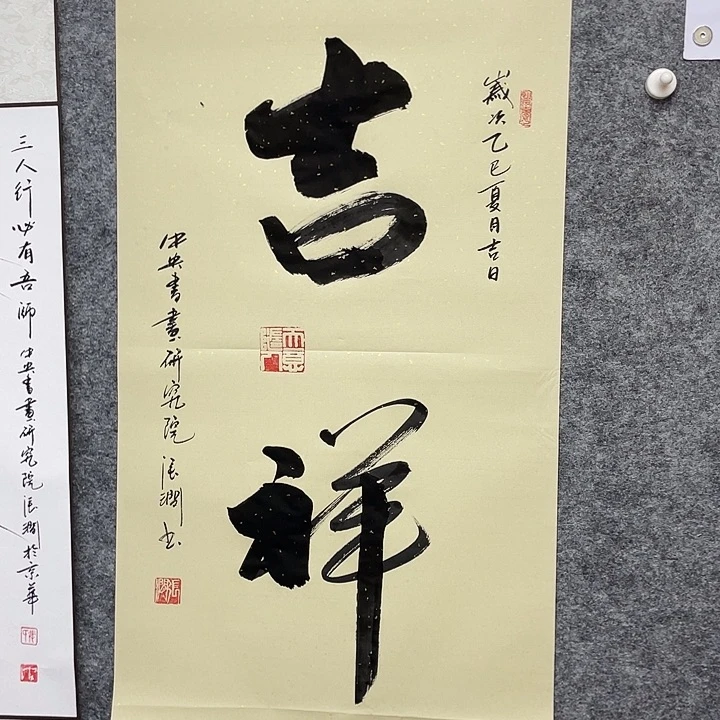 歲次乙巳夏月吉日
吉祥
中央書畫研究院張澗书
三人行必有吾师
中央書畫研究院張澗於京華